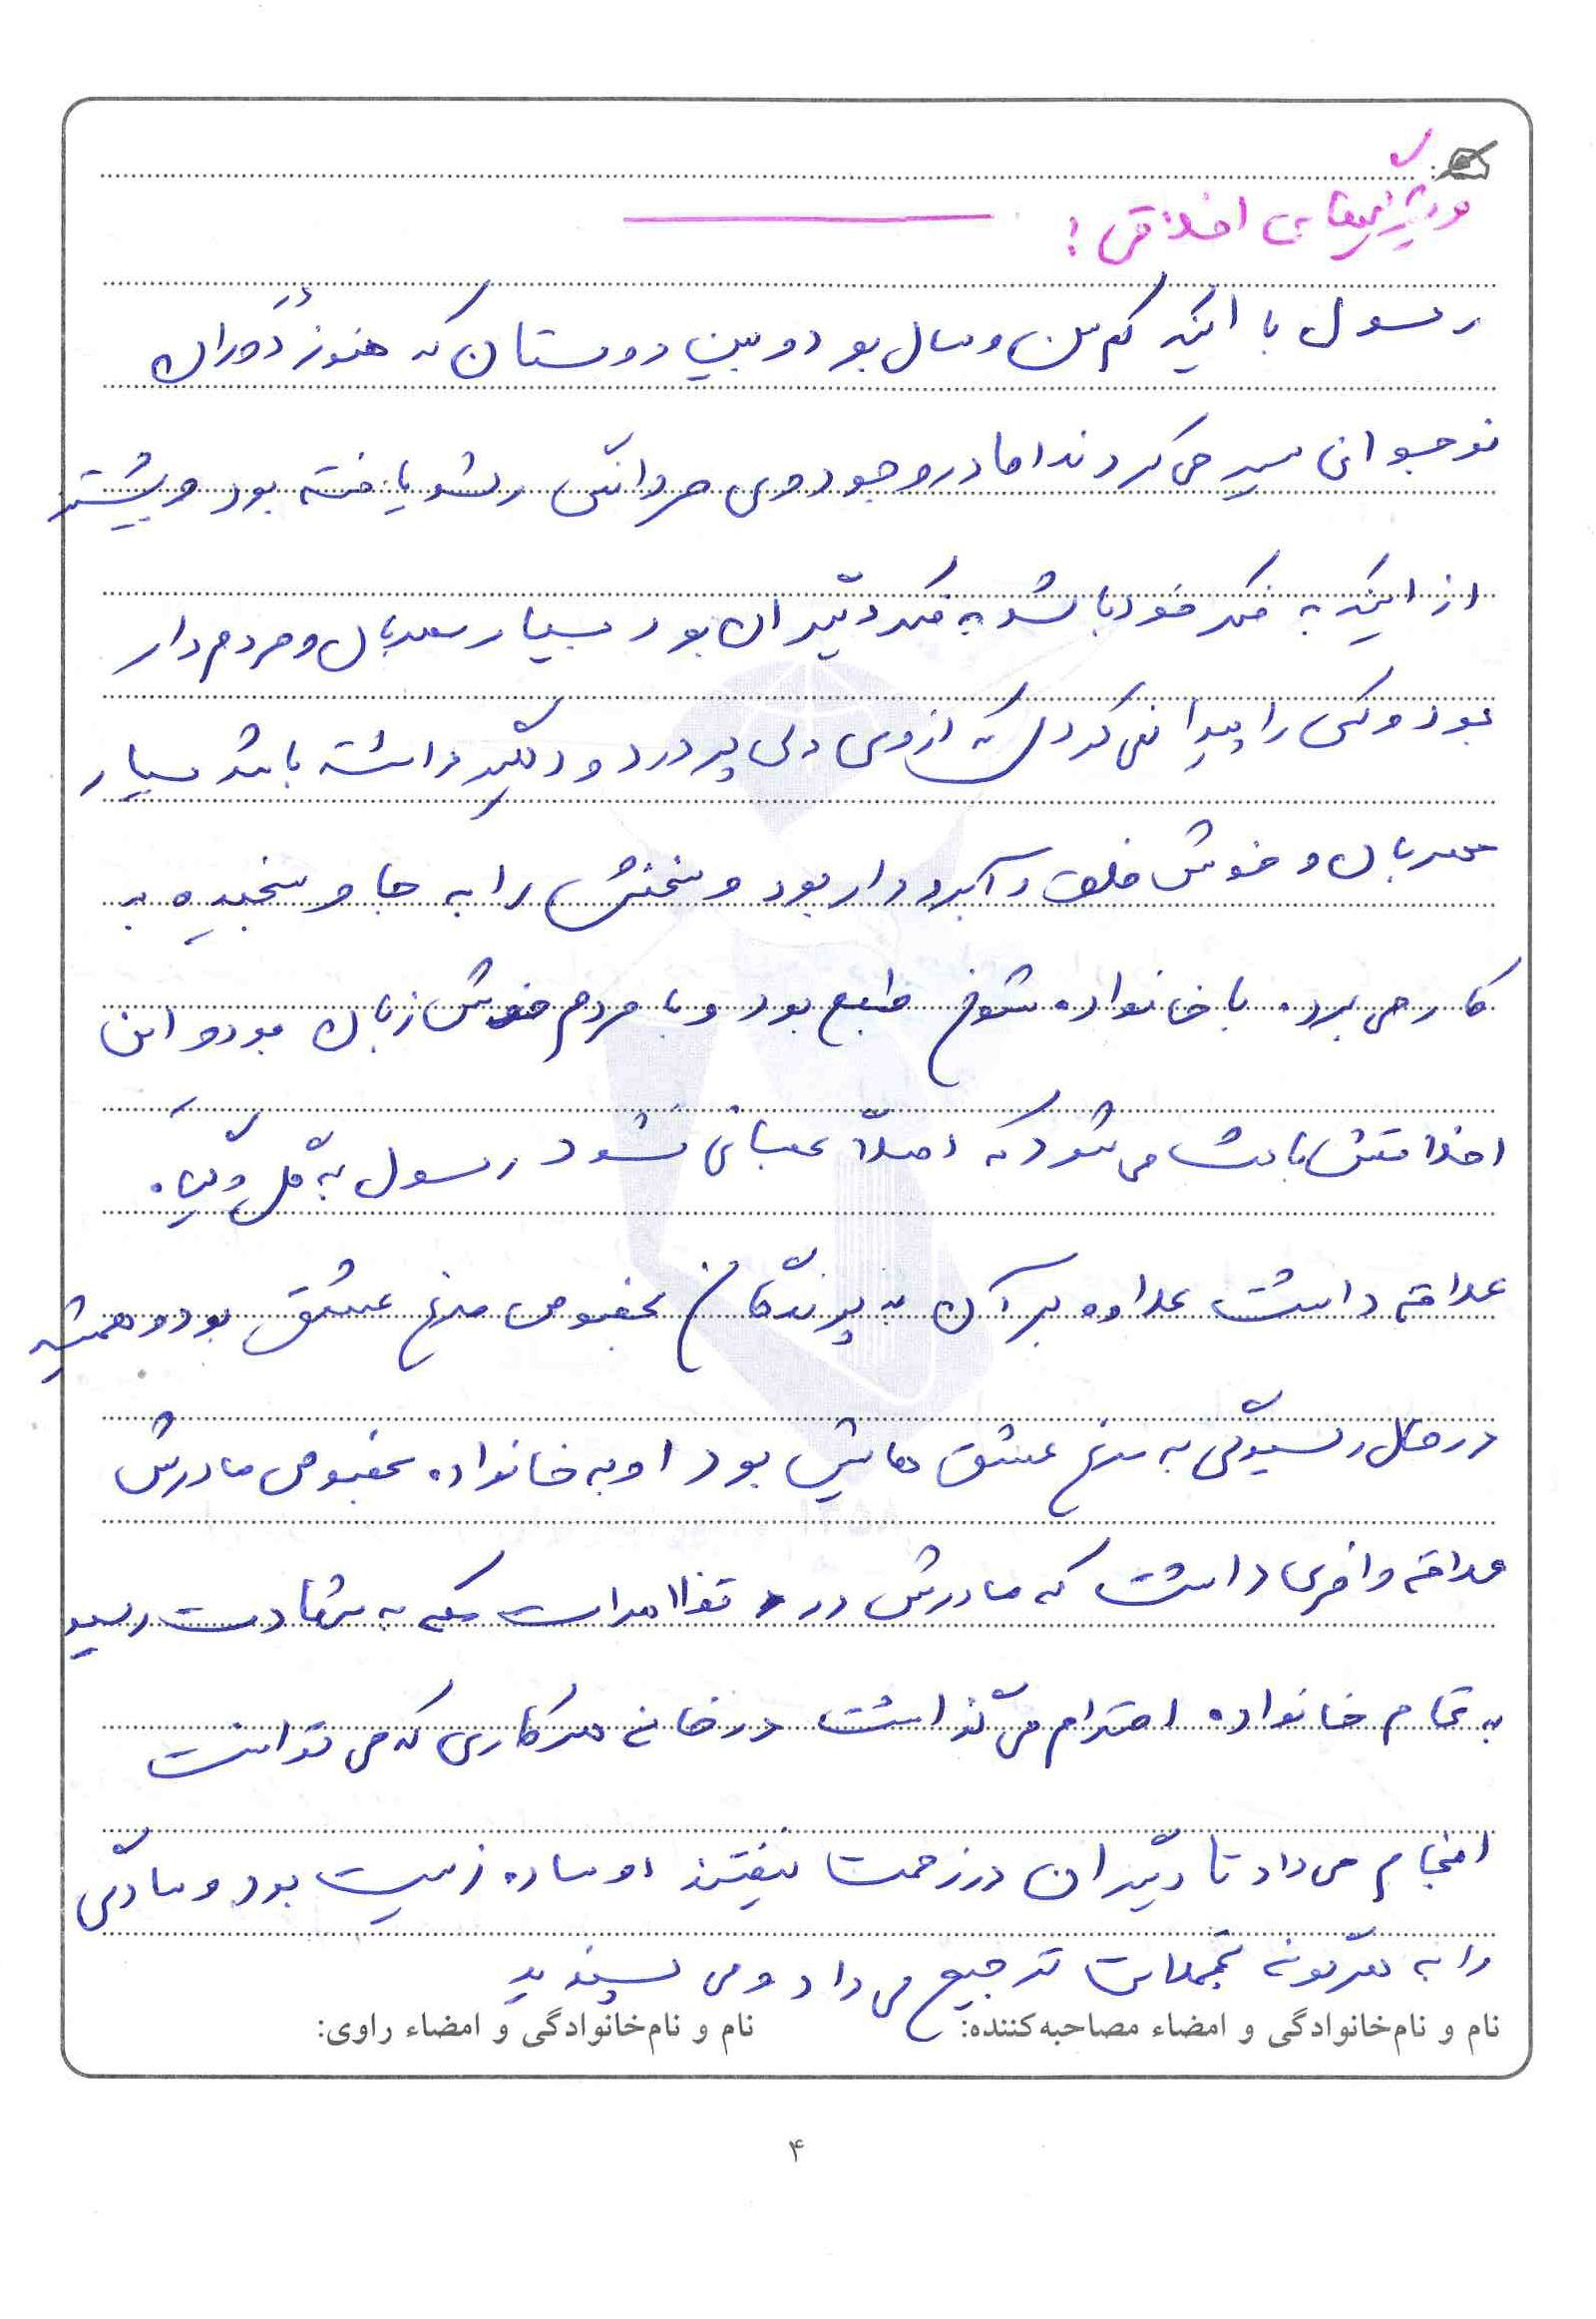 ویژگیهای اخلاقی :
رسول با اینکه کم سن و سال بود و بین دوستان که هنوز دوران
نوجوانی سپر می کردند اما در وجود وی مردانگی رشد یافته بود و بیشتر
از اینکه به فکر خود باشد به فکر دیگران بود بسیار مهربان و مردم دار
بود و کسی را پیدا نمی کرد که از وی دلی پر درد و دلگیر داشته باشد بسیار
مهربان و خوش خلق و آبرودار بود و سخنش را به جا و سنجیده به
کار می برد. با خانواده شوخ طبع بود و با مردم خوش زبان بود و این
اخلاقش باعث می شود که اصلاً عصبانی نشود رسول به گل و گیاه
علاقه داشت علاوه بر آن به پرندگان بخصوص مرغ عشق بود و همیشه
در حال رسیدگی به مرغ عشق هایش بود او به خانواده بخصوص مادرش
علاقه وافری داشت که مادرش در به شهادت رسید
به تمام خانواده احترام می گذاشت در خانه هر کاری که می توانست
انجام می داد تا دیگران در زحمت نیفتند او ساده زیست بود و سادگی
را به هرگونه تجملات ترجیح می داد و می پسندید
نام و نام‌خانوادگی و امضاء مصاحبه‌کننده: نام و نام‌خانوادگی و امضاء راوی:
۴